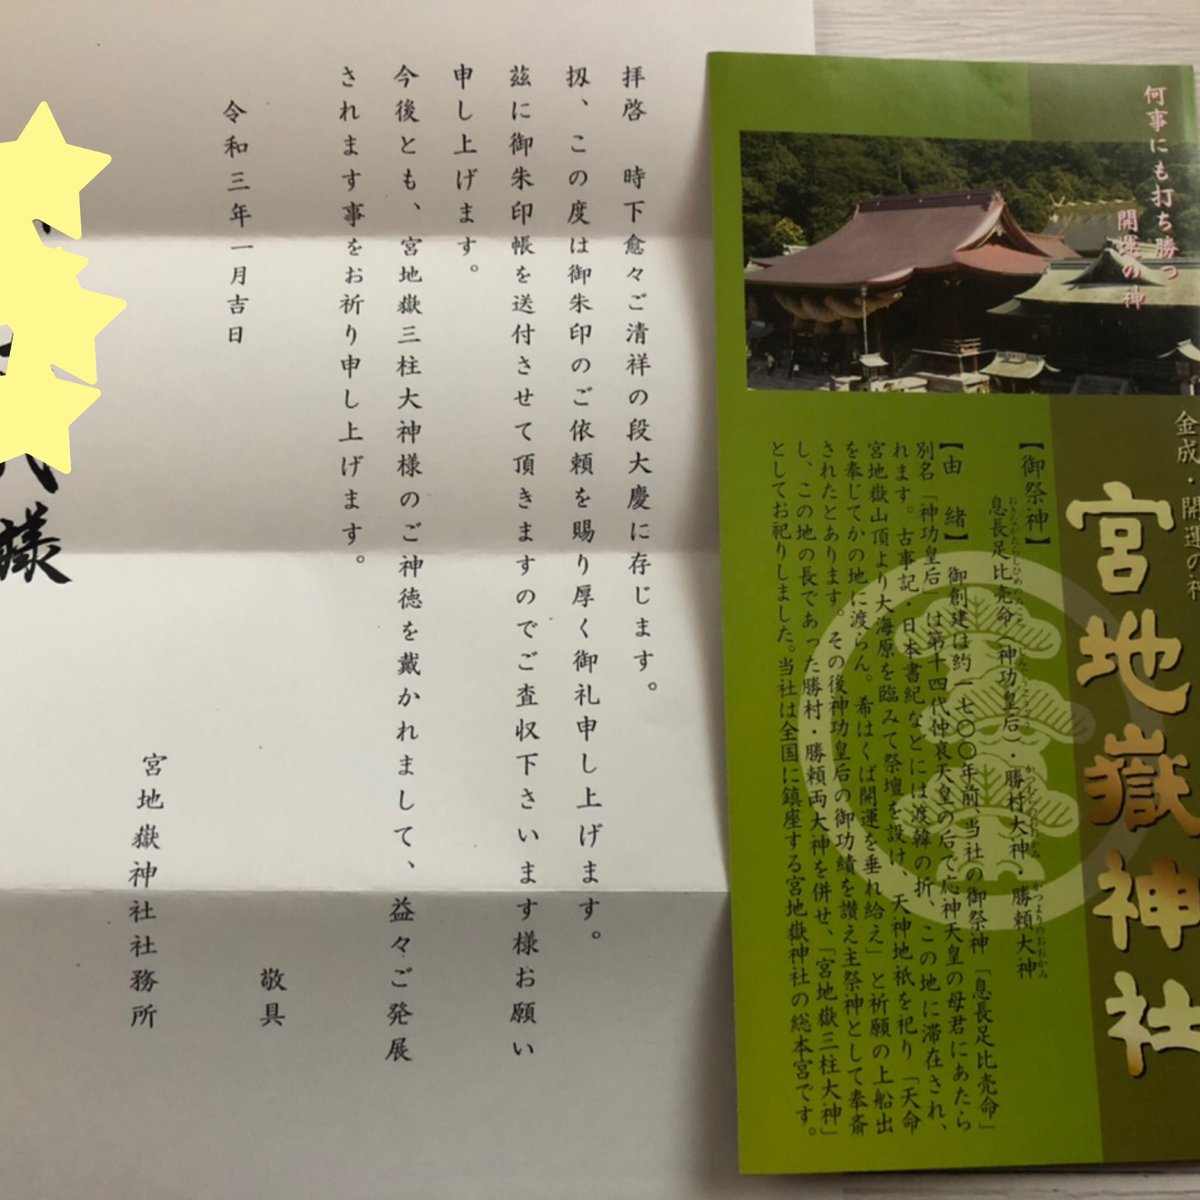 拝啓　時下愈々ご清祥の段大慶に存じます。
扨、この度は御朱印のご依頼を賜り厚く御礼申し上げます。
茲に御朱印帳を送付させて頂きますのでご査収下さいます様お願い
申し上げます。
今後とも、宮地嶽三柱大神様のご神徳を戴かれまして、益々ご発展
されます事をお祈り申し上げます。
敬具
令和三年一月吉日
宮地嶽神社社務所
様
何事にも打ち勝つ
開運の神
金成・開運の
宮地嶽神社
【御祭神】
息長足比売命（神功皇后）・勝村大神・勝頼大神
おきながたらしひめのみこと
かつむらのおおかみ
かつよりのおおかみ
【由　緒】　御創建は約一七〇〇年前、当社の御祭神「息長足比売命」
別名「神功皇后」は第十四代仲哀天皇の后で応神天皇の母君にあたら
れます。古事記・日本書紀などには渡韓の折、この地に滞在され、
宮地嶽山頂より大海原を臨みて祭壇を設け、天神地祇を祀り「天命
を奉じてかの地に渡らん。希はくば開運を垂れ給え」と祈願の上船出
されたとあります。その後神功皇后の御功績を讃え主祭神として奉斎
し、この地の長であった勝村・勝頼両大神を併せ、「宮地嶽三柱大神」
としてお祀りしました。当社は全国に鎮座する宮地嶽神社の総本宮です。